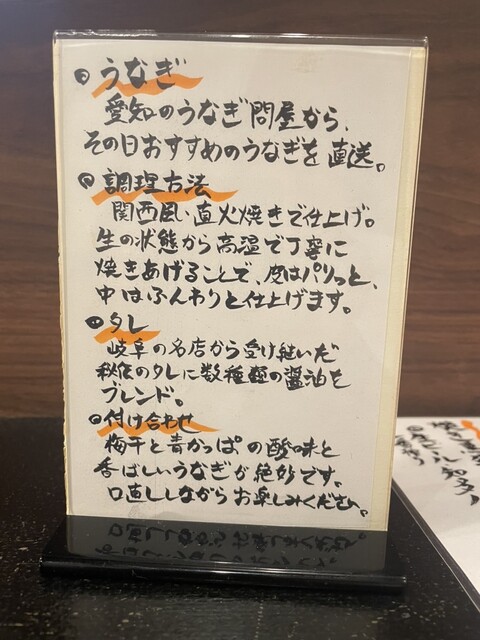 うなぎ
愛知のうなぎ問屋から、
その日おすすめのうなぎを直送。
調理方法
関西風、直火焼きで仕上げ。
生の状態から高温で丁寧に
焼きあげることで、皮はパリっと、
中はふんわりと仕上げます。
タレ
岐阜の名店から受け継いだ
秘伝のタレに数種類の醤油を
ブレンド。
付け合わせ
梅干と青かっぱの酸味と
香ばしいうなぎが絶妙です。
口直ししながらお楽しみください。